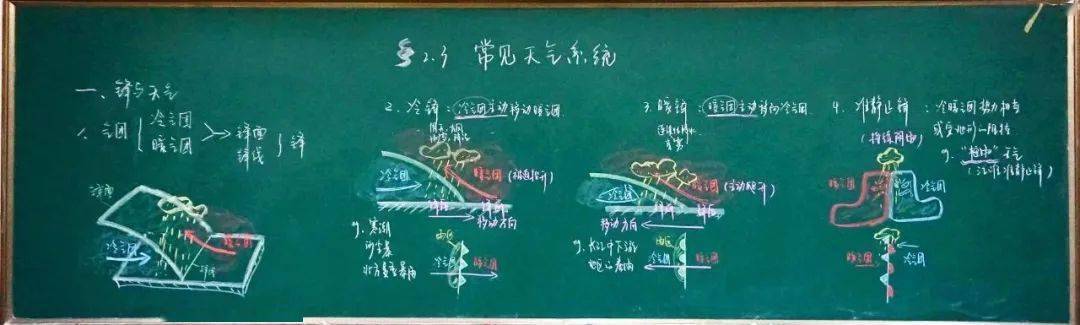 § 2.3 常见天气系统
一、锋与天气
1. 气团 { 冷气团 暖气团 > 锋面 锋线 } 锋
锋面
冷气团
暖气团
锋线
2. 冷锋：冷气团主动移动暖气团
冷气团
暖气团 (被迫抬升)
锋后
锋前
移动方向
eg. 寒潮
沙尘暴
北方夏季暴雨
雨区
冷气团
暖气团
3. 暖锋：暖气团主动移向冷气团
连续性降水
冷气团
暖气团 (主动爬升)
锋前
锋后
移动方向
eg. 长江中下游
地区春雨
雨区
冷气团
暖气团
4. 准静止锋：冷暖气团势力相当
或受地形阻挡
(持续阴雨)
eg. "梅雨"天气
(江淮准静止锋)
暖气团
冷气团
暖气团
冷气团